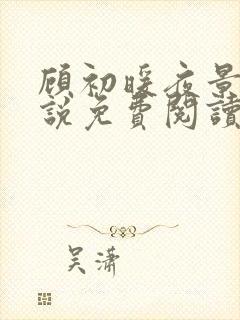 顾初暖夜景
說免費閱讀
吴潇